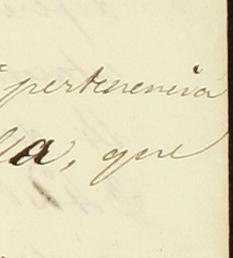 pertenencia
a, que